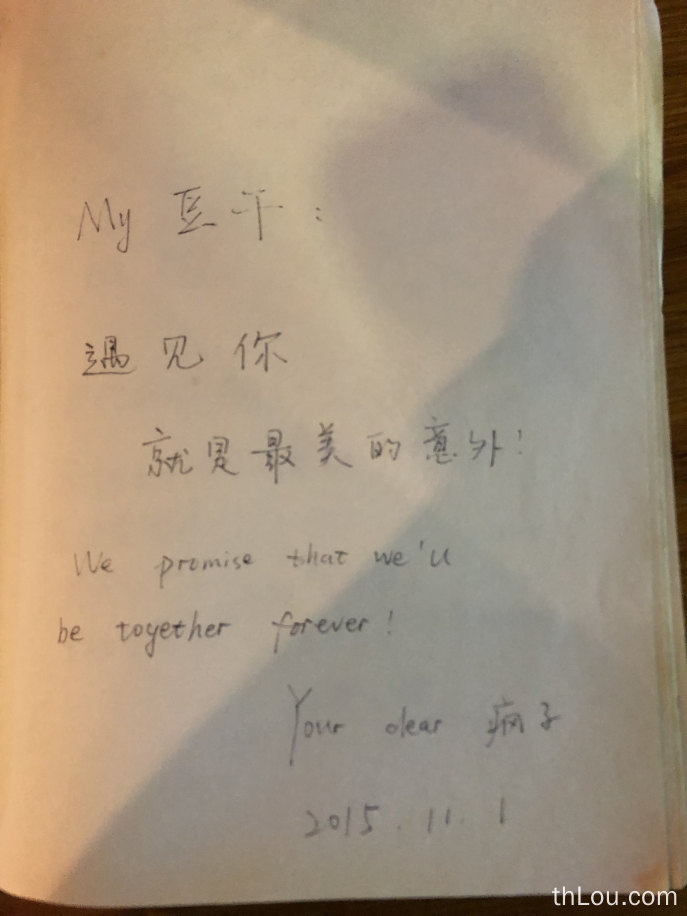 My 豆干：
遇见你
就是最美的意外！
We promise that we'll
be together forever!
Your dear 疯子
2015.11.1
thLou.com